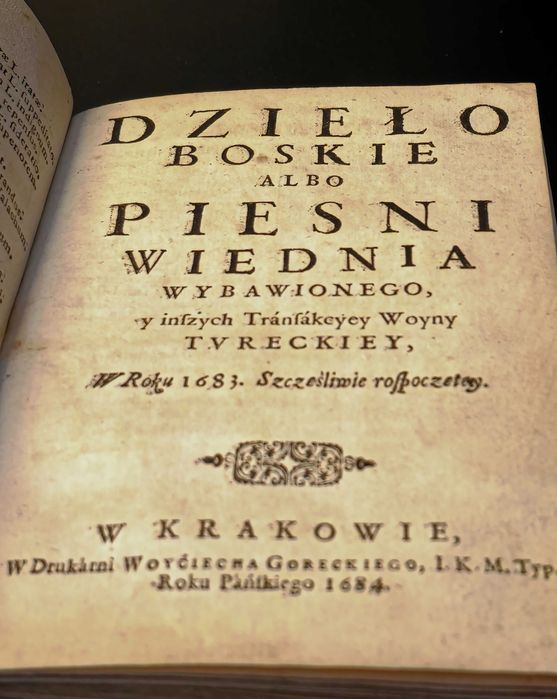 DZIEŁO
BOSKIE
ALBO
PIESNI
WIEDNIA
WYBAWIONEGO,
y inſzych Tránſákcyey Woyny
TVRECKIEY,
W Roku 1683. Szcześliwie roſpoczetey.
W KRAKOWIE,
W Drukárni WOYĆIECHA GORECKIEGO, I. K. M. Typ.
Roku Páńſkiego 1684.